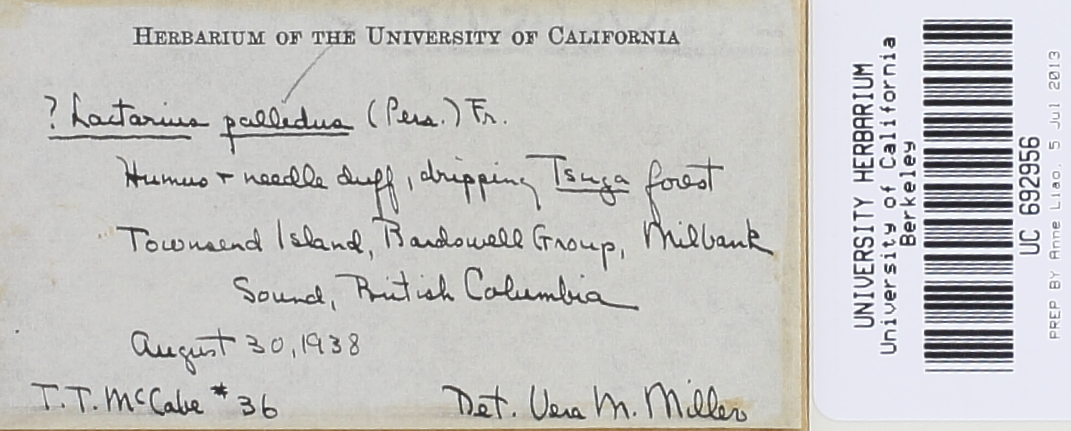 HERBARIUM OF THE UNIVERSITY OF CALIFORNIA
? Lactarius pallidus (Pers.) Fr.
Humus + needle duff, dripping Tsuga forest
Townsend Island, Bardswell Group, Milbank
Sound, British Columbia
August 30, 1938
T. T. McCabe # 36
Det. Vera M. Miller
UNIVERSITY HERBARIUM
University of California
Berkeley
UC 692956
PREP BY Anne Liao, 5 Jul 2013